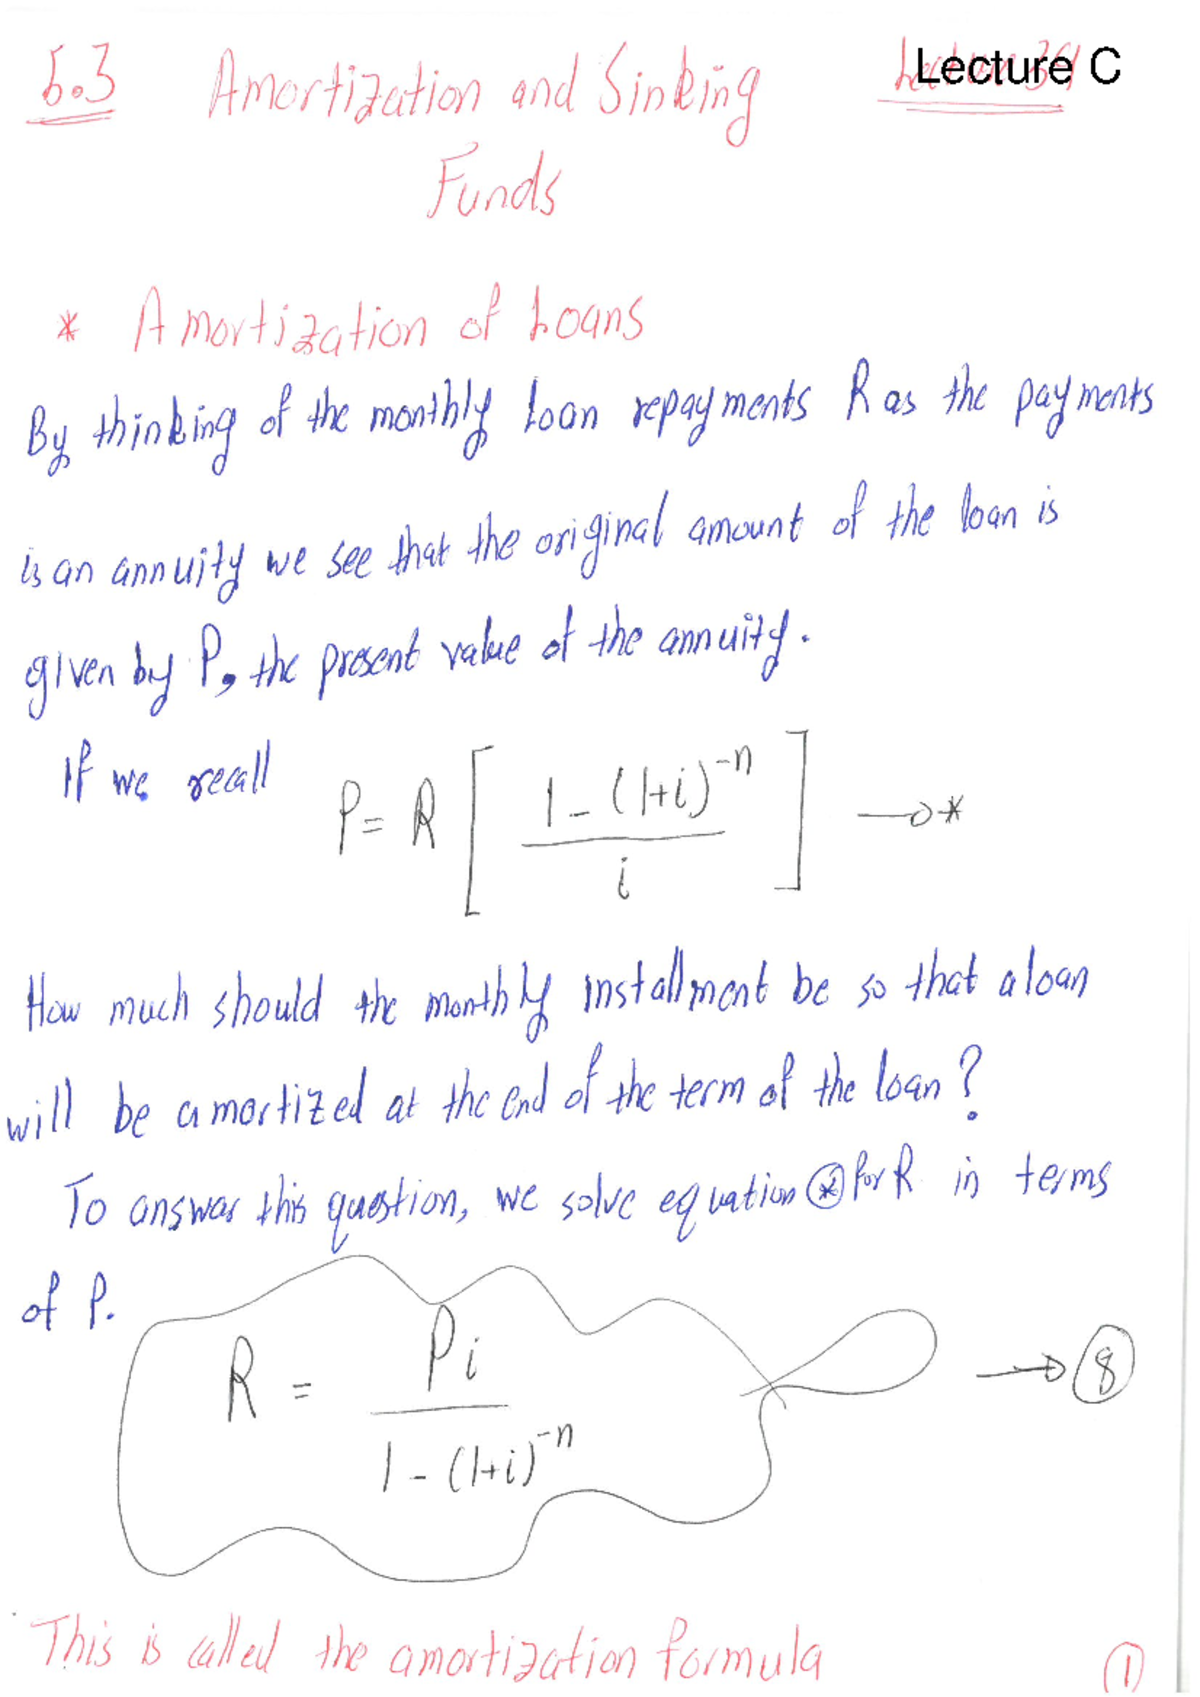 5.3 Amortization and Sinking Lecture C
Funds
* Amortization of Loans
By thinking of the monthly loan repayments R as the payments
is an annuity we see that the original amount of the loan is
given by P, the present value of the annuity.
If we recall P = R [ (1 - (1+i)^-n) / i ] → *
How much should the monthly installment be so that a loan
will be amortized at the end of the term of the loan?
To answer this question, we solve equation ⊛ for R in terms
of P.
R = Pi / (1 - (1+i)^-n) → ⑧
This is called the amortization formula ①